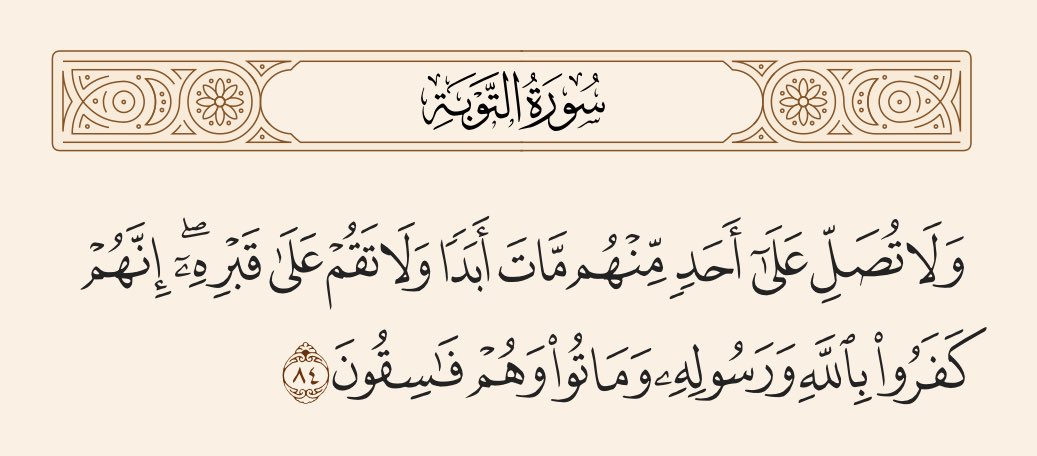 سُورَةُ التَّوْبَةِ
وَلَا تُصَلِّ عَلَىٰٓ أَحَدٍ مِّنْهُم مَّاتَ أَبَدًا وَلَا تَقُمْ عَلَىٰ قَبْرِهِۦٓ ۖ إِنَّهُمْ
كَفَرُوا۟ بِٱللَّهِ وَرَسُولِهِۦ وَمَاتُوا۟ وَهُمْ فَـٰسِقُونَ ٨٤